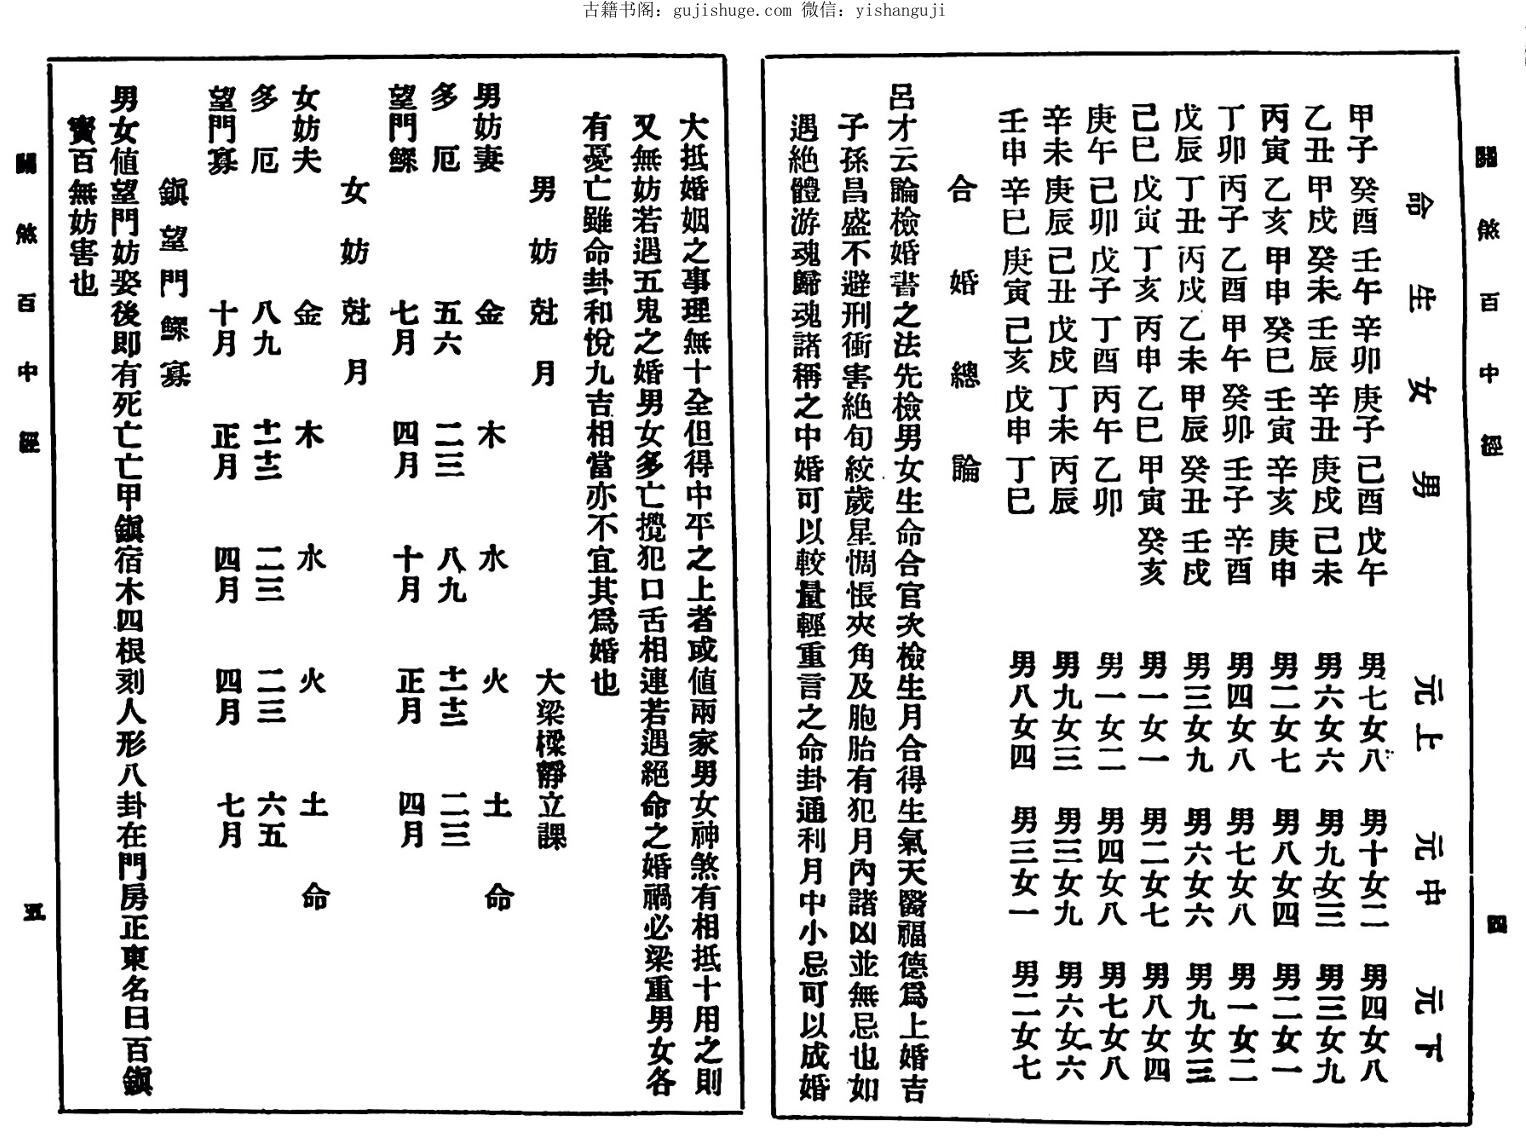 古籍书阁：gujishuge.com 微信：yishanguji
關煞百中經 四
男女生命 上元 中元 下元
甲子 癸酉 壬午 辛卯 庚子 己酉 戊午 男七女八 男十女二 男四女八
乙丑 甲戌 癸未 壬辰 辛丑 庚戌 己未 男六女六 男九女三 男三女九
丙寅 乙亥 甲申 癸巳 壬寅 辛亥 庚申 男二女七 男八女四 男二女一
丁卯 丙子 乙酉 甲午 癸卯 壬子 辛酉 男四女八 男七女八 男一女二
戊辰 丁丑 丙戌 乙未 甲辰 癸丑 壬戌 男三女九 男六女六 男九女三
己巳 戊寅 丁亥 丙申 乙巳 甲寅 癸亥 男一女一 男二女七 男八女四
庚午 己卯 戊子 丁酉 丙午 乙卯 男一女二 男四女八 男七女八
辛未 庚辰 己丑 戊戌 丁未 丙辰 男九女三 男三女九 男六女六
壬申 辛巳 庚寅 己亥 戊申 丁巳 男八女四 男三女一 男二女七
合婚總論
呂才云論檢婚書之法先檢男女生命合官次檢生月合得生氣天醫福德爲上婚吉
子孫昌盛不避刑衝害絶旬絞歲星惆悵夾角及胞胎有犯月內諸凶並無忌也如
遇絶體游魂歸魂諸稱之中婚可以較量輕重言之命卦通利月中小忌可以成婚
大抵婚姻之事理無十全但得中平之上者或値兩家男女神煞有相抵十用之則
又無妨若遇五鬼之婚男女多亡攪犯口舌相連若遇絕命之婚禍必梁重男女各
有憂亡雖命卦和悅九吉相當亦不宜其爲婚也
大梁樑靜立課
男妨尅月
男妨妻 金 木 水 火 土 命
多厄 五六 二三 八九 十一十二 二三
望門鰥 七月 四月 十月 正月 四月
女妨尅月
女妨夫 金 木 水 火 土 命
多厄 八九 十一十二 二三 二三 六五
望門寡 十月 正月 四月 四月 七月
鎭望門鰥寡
男女値望門妨娶後即有死亡亡甲鎭宿木四根刻人形八卦在門房正東名曰百鎭
寳百無妨害也
關煞百中經 五